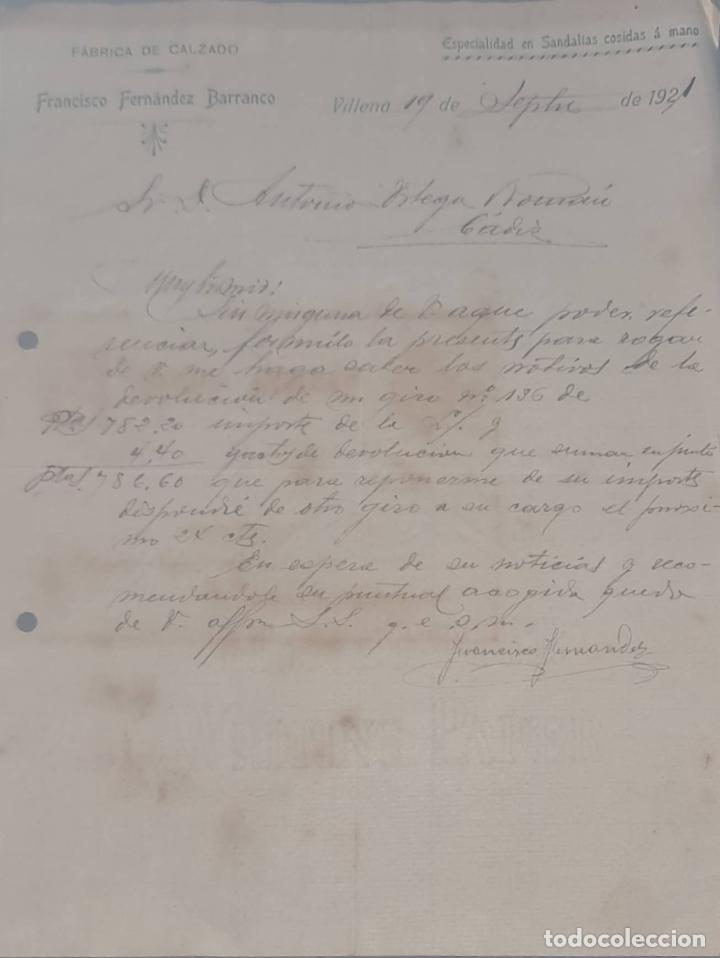 FÁBRICA DE CALZADO
Francisco Fernández Barranco
Especialidad en Sandalias cosidas á mano
Villena 19 de Septbre de 1921
Sr. D. Antonio Ortega Román
Cádiz
Muy Sr. mio:
Sin ninguna de V. aque poder refe-
renciar, formulo la presente para rogar
de V. me haga saber los motivos de la
devolución de mi giro nº 136 de
Ptas/ 782.20 importe de la L/. y
4.40 gastos de devolucion que suman en junto
ptas/. 786.60 que para reponerme de su importe
dispondré de otro giro a su cargo el proxi-
mo 24 cte.
En espera de su noticias y reco-
mendandole su puntual acogida queda
de V. affmo S.S. q. e. s. m.
Francisco Fernandez
todocoleccion.net